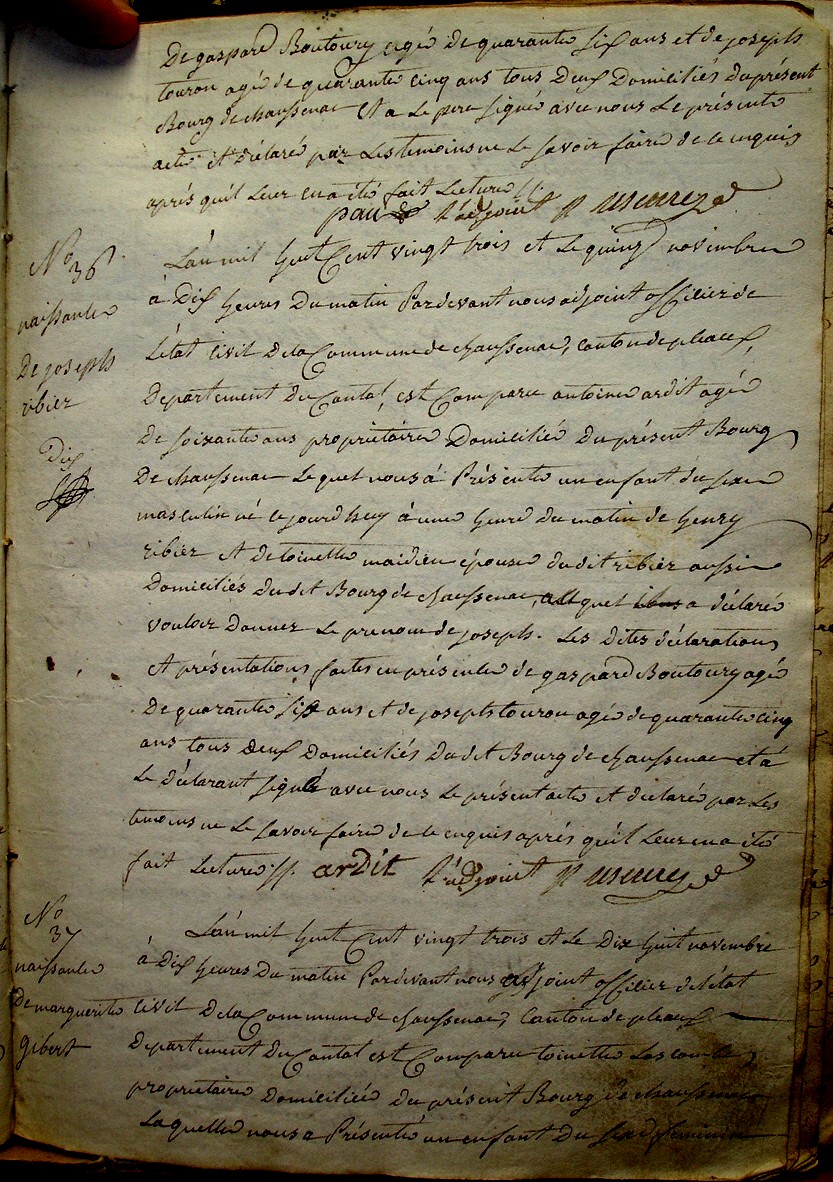 De gaspard Boutoury agé de quarante six ans et de joseph
touron agé de quarante cinq ans tous deux Domiciliés du présent
Bourg de chaussenac Et a Le pere signé avec nous Le présent
acte et déclaré par Les temoins ne Le savoir faire de ce enquis
aprés qu'il Leur en a été fait Lecture //.
L'adjoint
No
36
naissance
De joseph
ribier
Dix
L'an mil huit Cent vingt trois et Le quinze novembre
à Dix heures Du matin Pardevant nous adjoint officier de
L'état Civil De la Commune de chaussenac, canton de pleaux,
Departement du Cantal, est Comparu antoine ardit agé
De soixante ans propriétaire Domicilié Du présent Bourg
De chaussenac Lequel nous à Présenté un enfant du sexe
masculin né ce jourdhuy à une heure du matin de henry
ribier et de toinette maidieu épouse du dit ribier aussi
Domiciliés Du dit Bourg de chaussenac, auquel a déclaré
vouloir Donner Le prenom de joseph. Les dites déclarations
et présentations faites en présence de gaspard Boutoury agé
De quarante six ans et de joseph touron agé de quarante cinq
ans tous deux Domiciliés Du dit Bourg de chaussenac et à
Le déclarant signé avec nous Le présent acte et déclaré par Les
temoins ne Le savoir faire de ce enquis aprés qu'il Leur en a été
fait Lecture //. ardit L'adjoint
No
37
naissance
De marguerite
gibert
L'an mil huit Cent vingt trois et Le Dix huit novembre
à Dix heures Du matin Pardevant nous adjoint officier de L'état
Civil De la Commune de chaussenac, Canton de pleaux
Departement Du Cantal est Comparu toinette Lascombe
propriétaire Domiciliée Du présent Bourg de chaussenac
Laquelle nous a Présenté un enfant Du sexe feminin